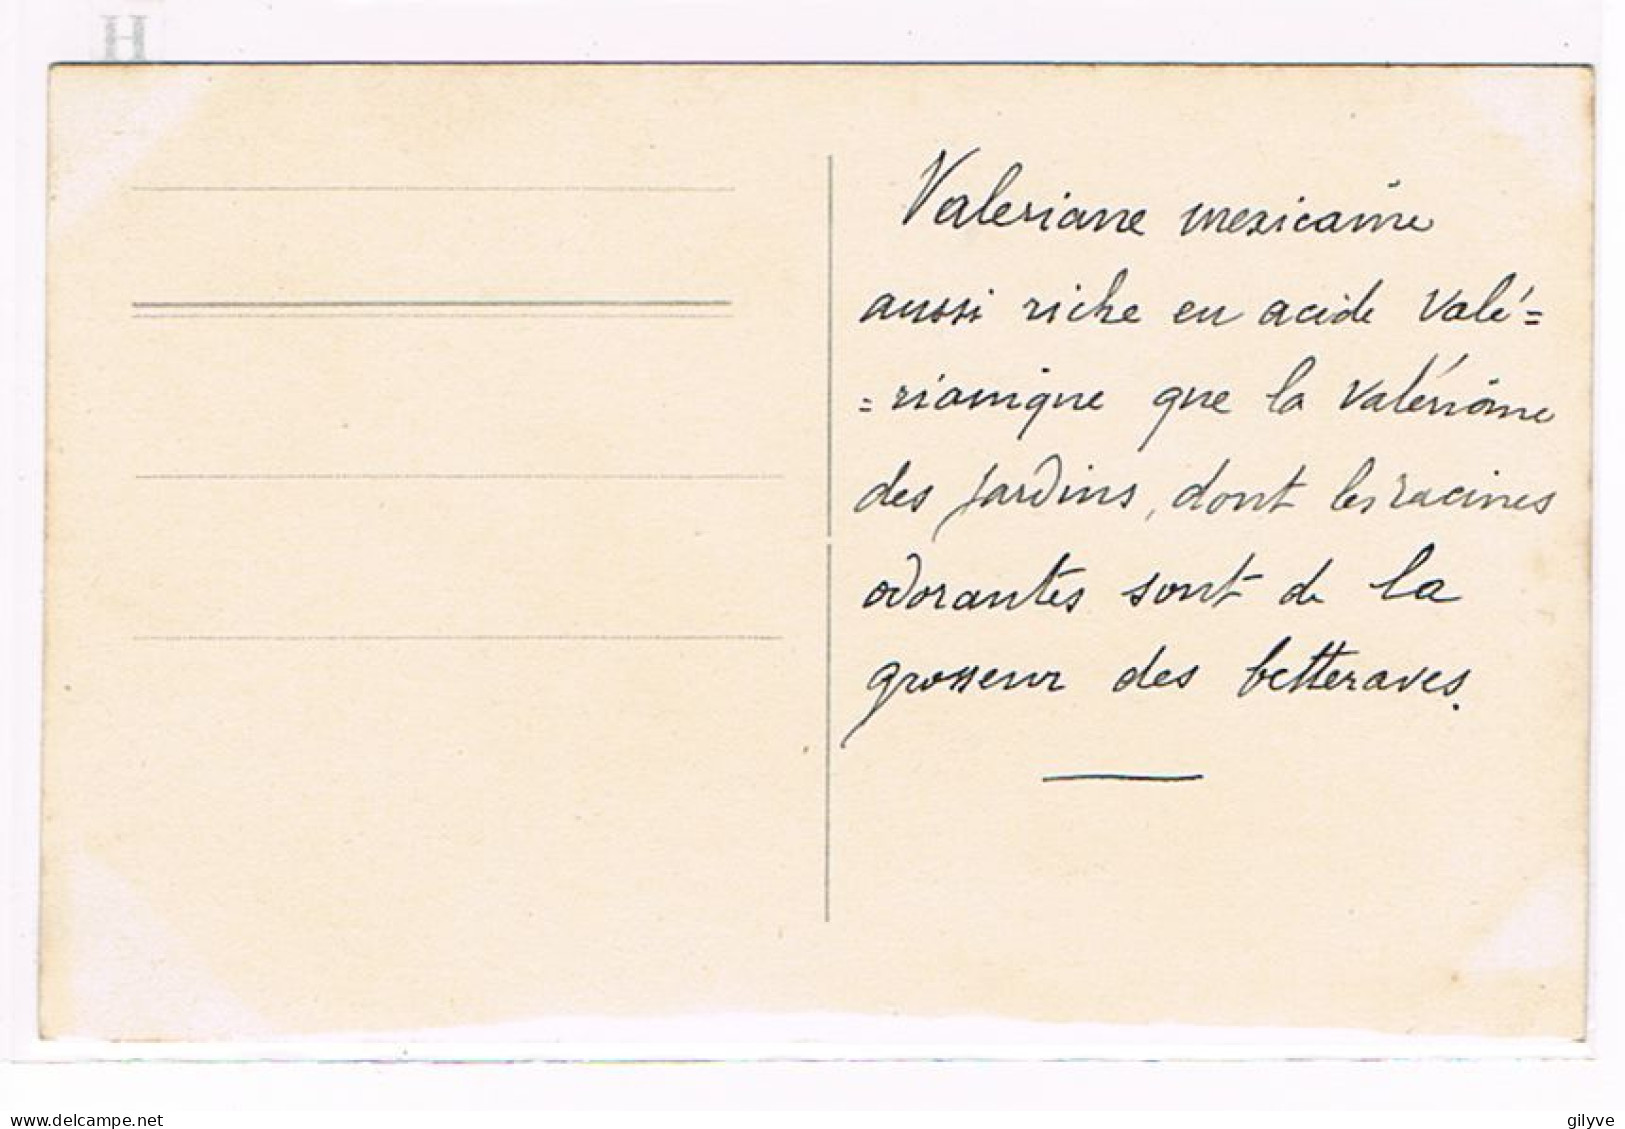 H
Valeriane mexicaine
aussi riche en acide valé=
=rianique que la valériane
des jardins, dont les racines
odorantes sont de la
grosseur des betteraves.
www.delcampe.net
gilyve